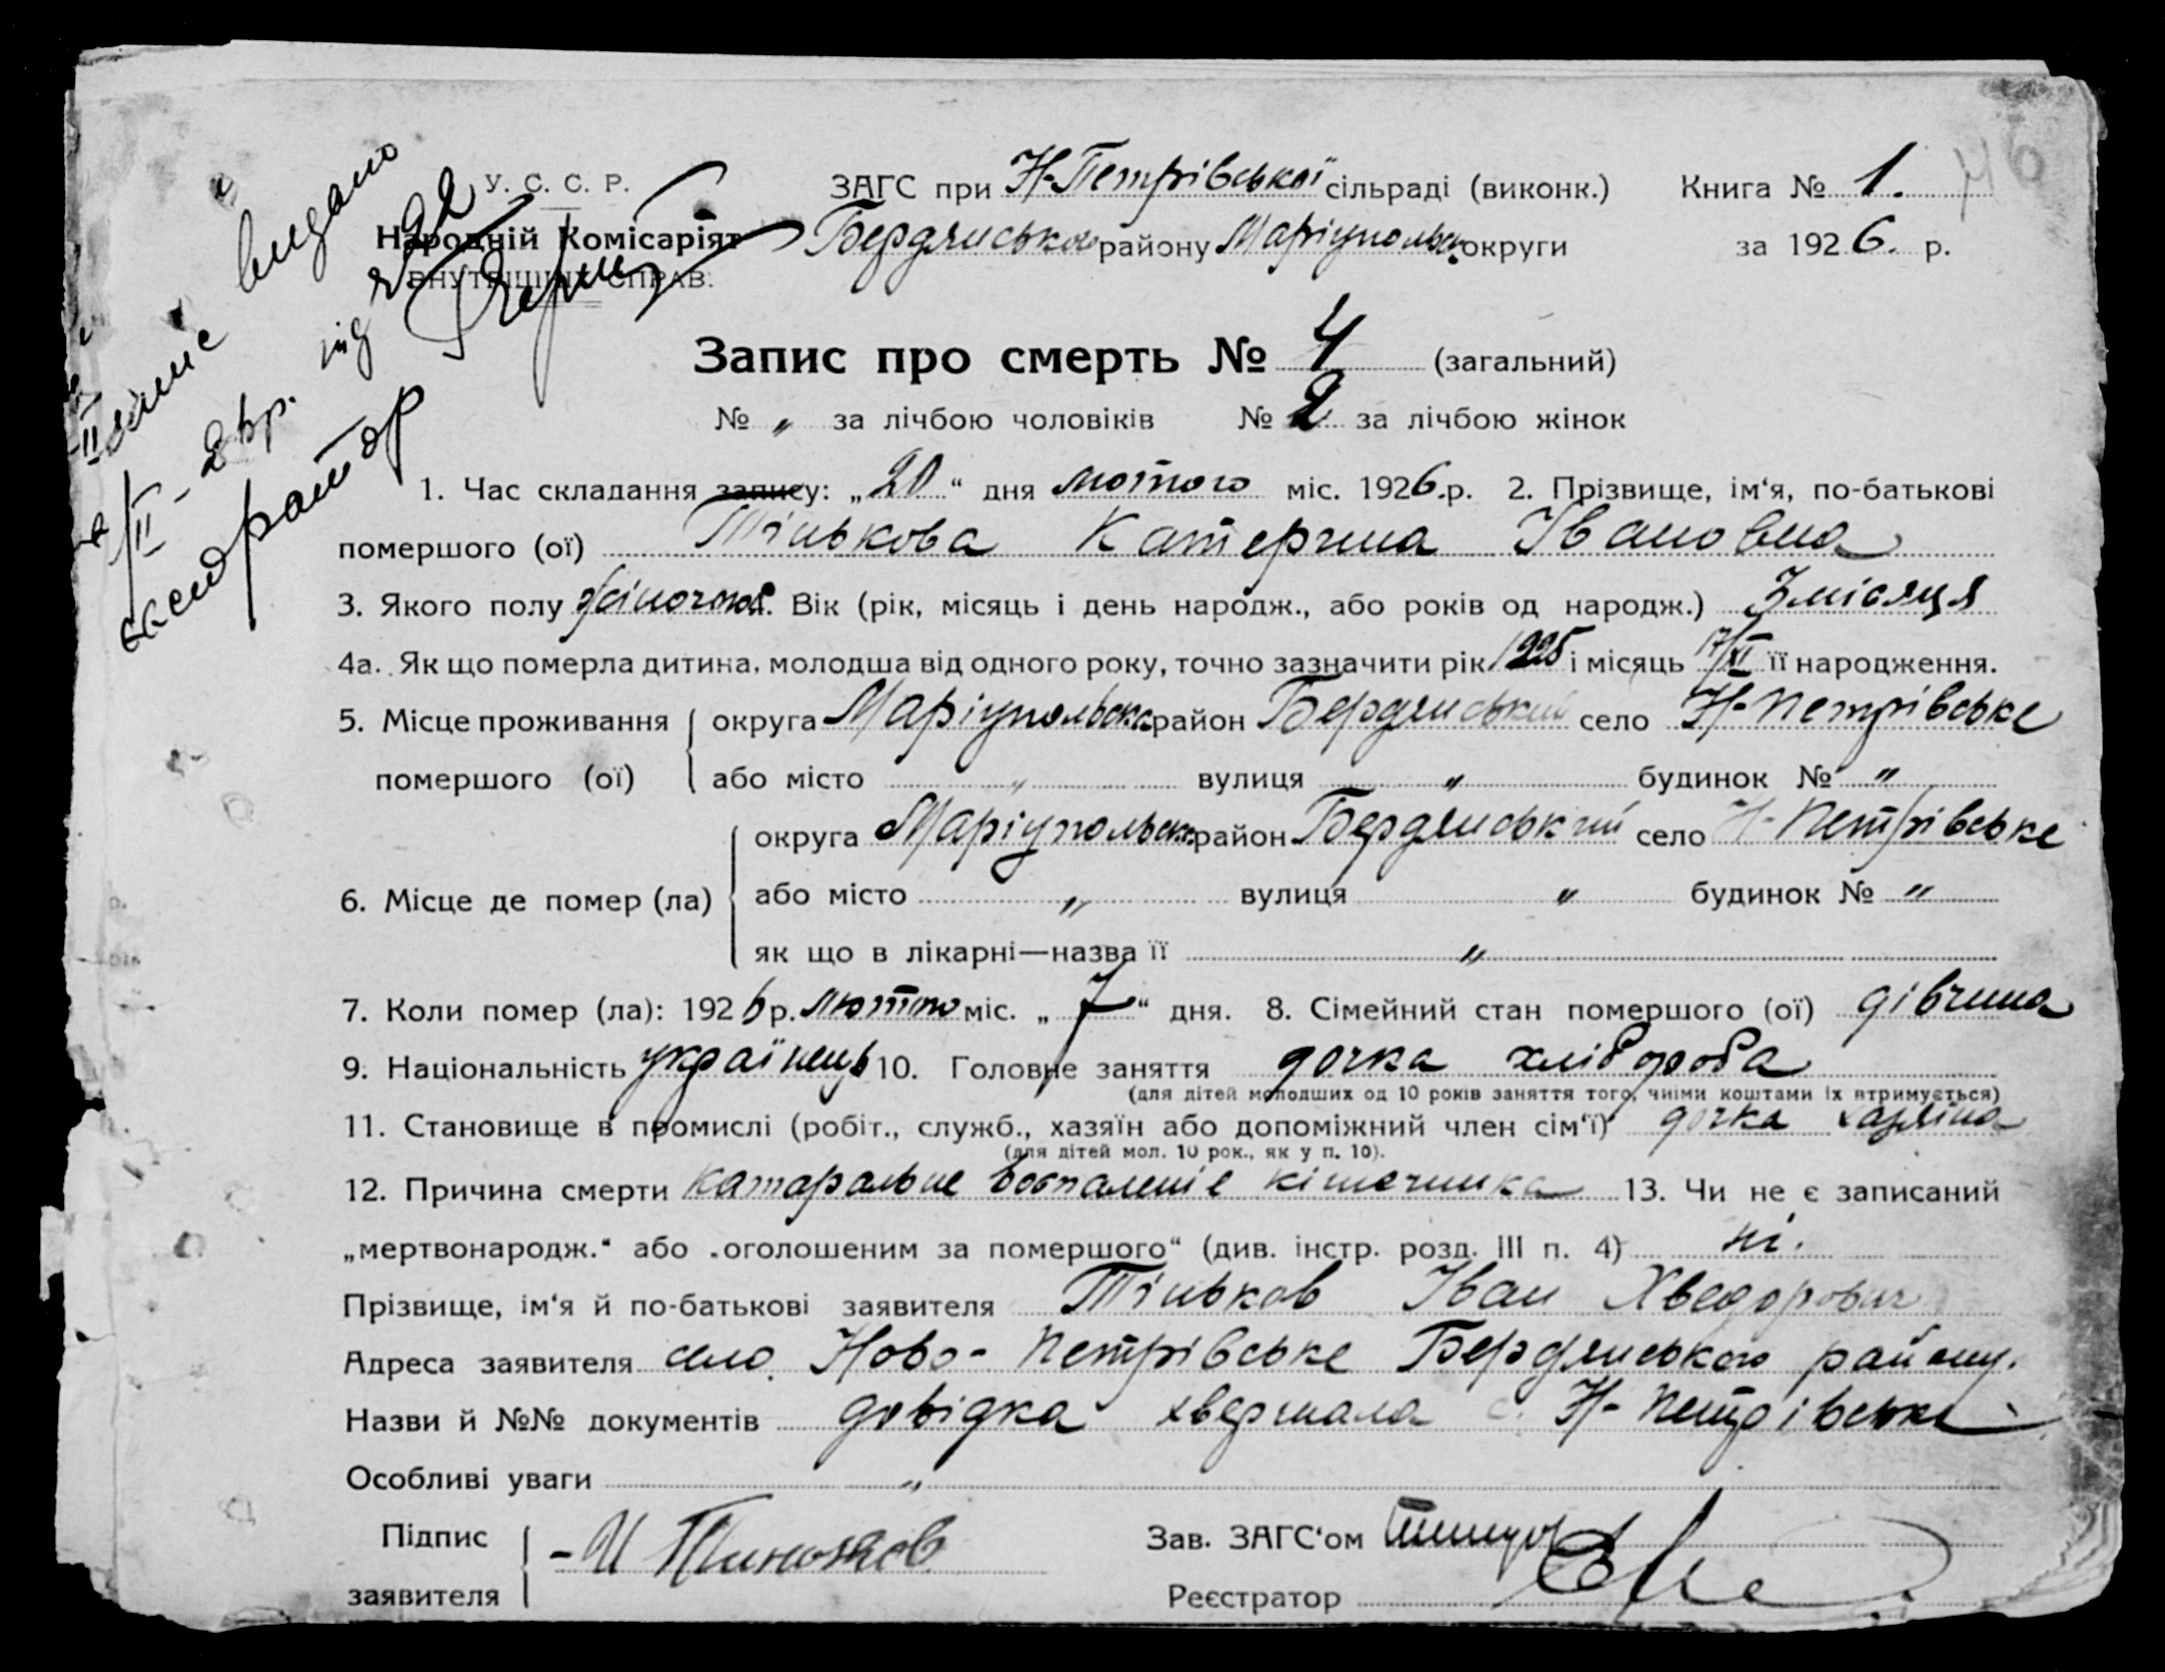 видано
під № 92
У. С. С. Р.
Народній Комісаріят
ВНУТРІШНІХ СПРАВ.
ЗАГС при Н-Петрівської сільраді (виконк.) Книга № 1.
Бердянського району Маріупольськ. округи за 1926. р.
46
Запис про смерть № 4 (загальний)
№ „ за лічбою чоловіків № 2 за лічбою жінок
1. Час складання запису: „20“ дня лютого міс. 1926.р. 2. Прізвище, ім‘я, по-батькові
помершого (ої) Тінькова Катерина Івановна
3. Якого полу жіночого. Вік (рік, місяць і день народж., або років од народж.) 3 місяця
4а. Як що померла дитина, молодша від одного року, точно зазначити рік 1925 і місяць 17/XI її народження.
5. Місце проживання округа Маріупольська район Бердянський село Н-Петрівське
помершого (ої) або місто „ вулиця „ будинок № „
округа Маріупольськ. район Бердянський село Н-Петрівське
6. Місце де помер (ла) або місто „ вулиця „ будинок № „
як що в лікарні—назва її „
7. Коли помер (ла): 1926 р. лютого міс. „7“ дня. 8. Сімейний стан помершого (ої) дівчина
9. Національність українець 10. Головне заняття дочка хлібороба
(для дітей молодших од 10 років заняття того, чиїми коштами їх втримується)
11. Становище в промислі (робіт., служб., хазяїн або допоміжний член сім‘ї) дочка хазяїна
(для дітей мол. 10 рок., як у п. 10).
12. Причина смерти катаральне воспаленіє кішечника 13. Чи не є записаний
„мертвонародж.“ або „оголошеним за помершого“ (див. інстр. розд. III п. 4) ні.
Прізвище, ім‘я й по-батькові заявителя Тіньков Іван Хведорович
Адреса заявителя село Ново-Петрівське Бердянського району.
Назви й №№ документів довідка хвершала с. Н-Петрівське
Особливі уваги „
Підпис заявителя И Тиньков
Зав. ЗАГС‘ом
Реєстратор